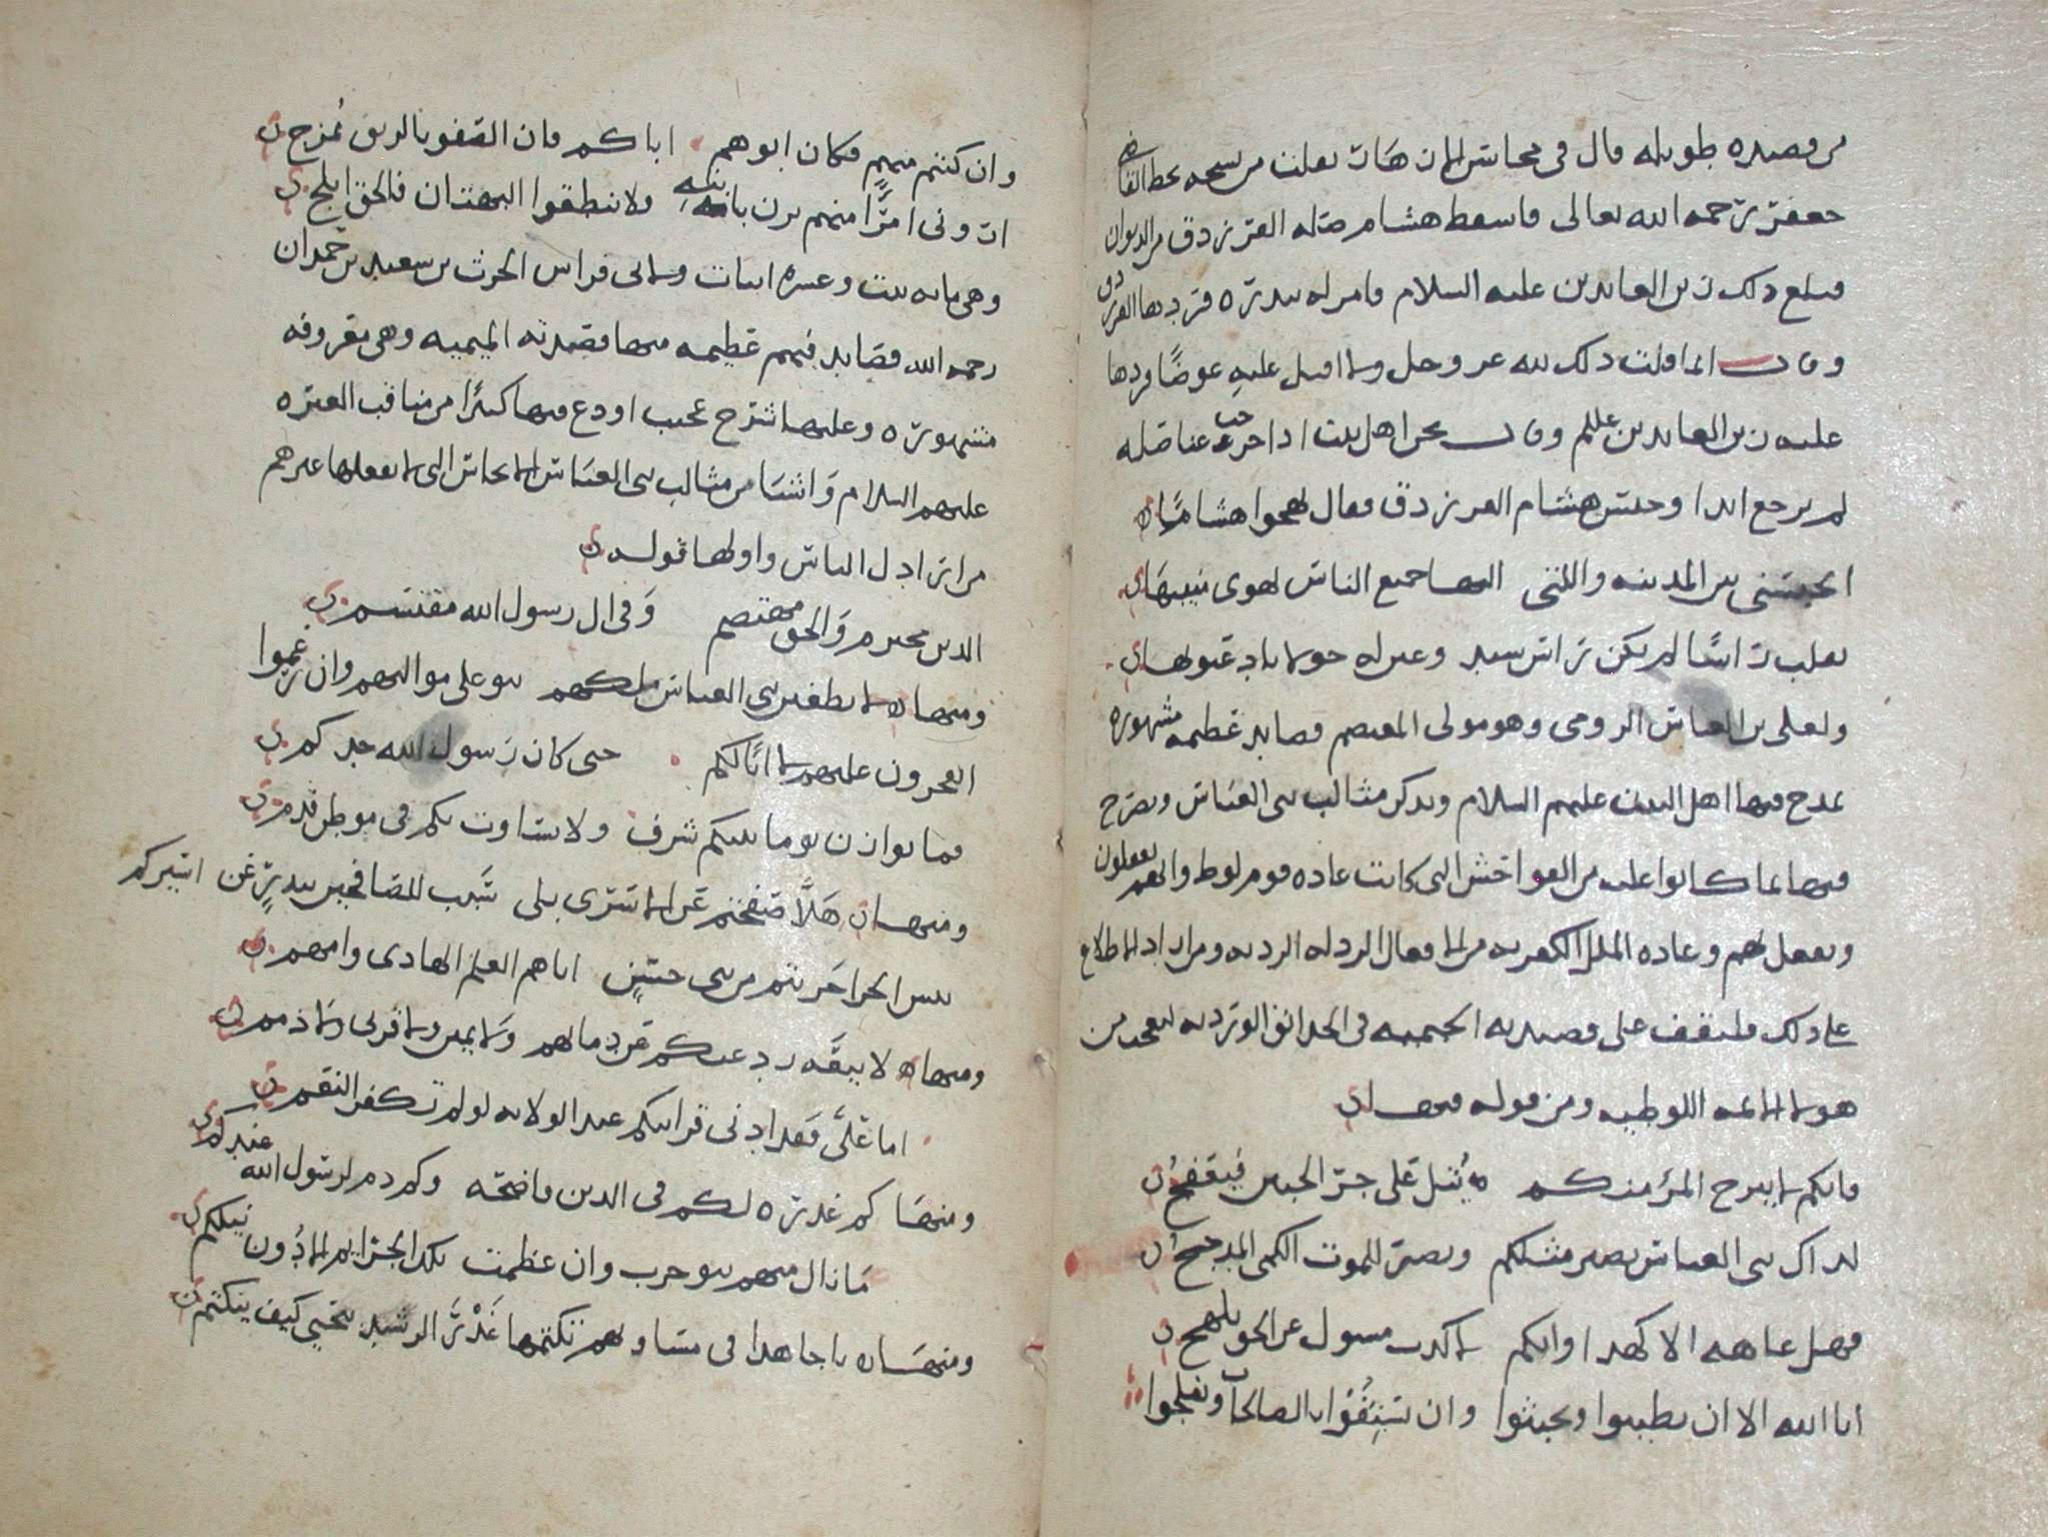 من قصيده طويله قال فى محاسن الازهار نقلت من نسخه بخط القاضى
جعفر رحمه الله تعالى فاسقط هشام صله الفرزدق من الديوان
فبلغ ذلك زين العابدين عليه السلام فامر له ببدره فردها الفرزدق
وقال انما قلت ذلك لله عز وجل ولا اقبل عليه عوضًا فردها
عليه زين العابدين علم وقال نحن اهل بيت اذا خرجت عنا صله
لم ترجع ابدا وحبس هشام الفرزدق فقال يهجوا هشامًا
ايحبسنى بين المدينه والتى اليها جميع الناس يهوى منيبها
يقلب راسًا لم يكن راس سيد وعين له حولا باد عيوبها
ولعلى بن العباس الرومى وهو مولى المعتصم قصايد عظيمه مشهوره
يمدح فيها اهل البيت عليهم السلام ويذكر مثالب بنى العباس ويصرح
فيها بما كانوا عليه من الفواحش التى كانت عاده قوم لوط وانهم يفعلون
ويفعل لهم وعاده الملل الكفريه من الافعال الرذله الرديه ومن اراد الاطلاع
على ذلك فليقف على قصيدته الجيميه فى الحدائق الورديه ليعجب من
هولا الائمه اللوطيه ومن قوله فيها
فانكم لا يبرح المرؤ منكم يُتل على حر الجبين فيعفج
كذاك بنى العباس يصبر مثلكم ويصبر للموت الكمى المدجج
فهل عاهه الا كهذا وانكم لاكذب مسول عن الحق يلهج
ابا الله الا ان تطيبوا وتخبثوا وان تسبقوا بالصالحات وتفلجوا
وان كنتم منهم فكان ابوهم اباكم فان الصفو بالرنق يُمزج
ارونى امرًا منهم يزن بابنه ولا تنطقوا البهتان فالحق ابلج
وهى مايه بيت وعشره ابيات ولابى فراس الحرث بن سعيد بن حمدان
رحمه الله قصايد فيهم عظيمه منها قصيدته الميميه وهى معروفه
مشهوره وعليها شرح عجيب اودع فيها كثيرًا من مناقب العتره
عليهم السلام واشيا من مثالب بنى العباس الانحاس التى لا يفعلها غيرهم
من اراذل الناس واولها قوله
الدين مخترم والحق مهتضم وفى ال رسول الله مقتسم
ومنها لا يطغين بنى العباس ملكهم بنو على مواليهم وان زعموا
اتفخرون عليهم لا ابًا لكم حتى كان رسول الله جدكم
فما توازن يوما بينكم شرف ولا تساوت بكم فى موطن قدم
ومنها هلَّا صفحتم عن الاسرى بلى سبب للصافحين ببدرٍ عن اسيركم
بيس الجزا جزيتم من بنى حسنٍ اباهم العلم الهادى وامهم
ومنها لا بيعه ردعتكم عن دمائهم ولا يمين ولا قربى ولا ذمم
اما على فقد ادنى قرابتكم عند الولايه لو لم تكفر النعم
ومنها كم غدره لكم فى الدين واضحه وكم دم لرسول الله عندكم
ما نال منهم بنو حرب وان عظمت تلك الجرايم الا دُون نيلكم
ومنها يا جاهدا فى مساويهم يكتمها غَدْرُ الرشيد بيحيى كيف ينكتم